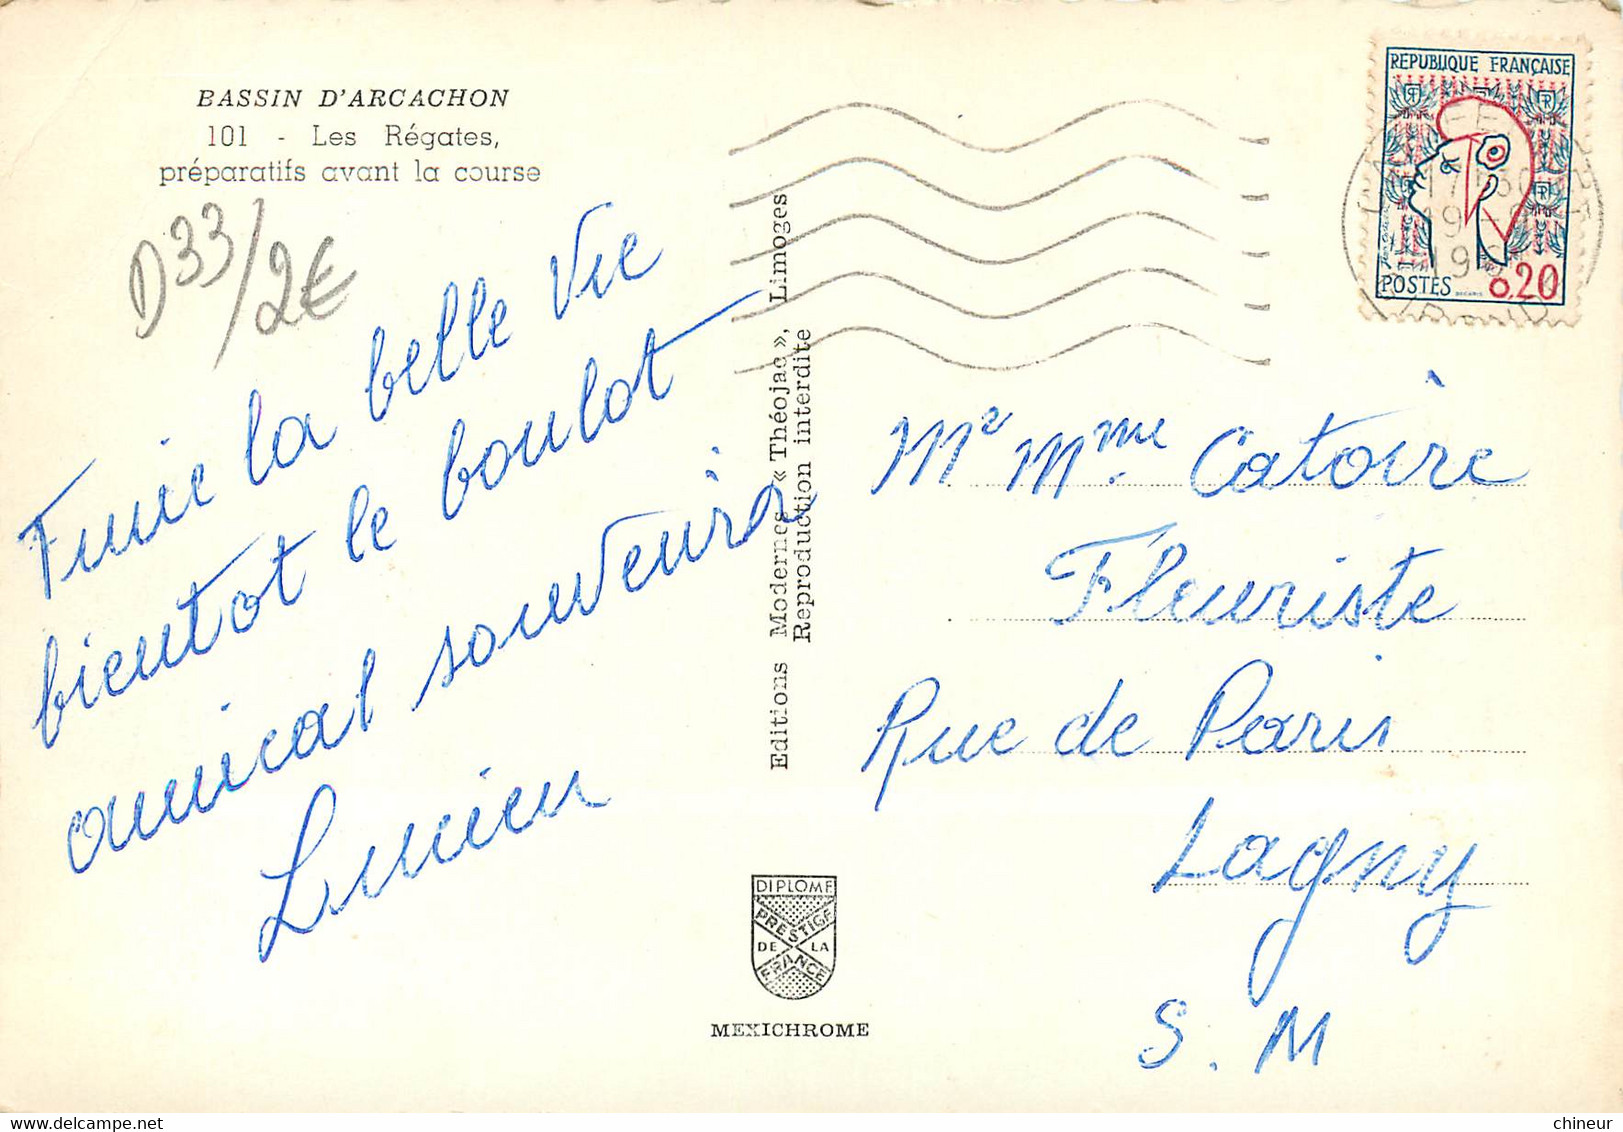 BASSIN D'ARCACHON
101 - Les Régates,
préparatifs avant la course
D33/2€
Finie la belle vie
bientot le boulot
amical souvenir
Lucien
Editions Modernes « Théojac », Limoges
Reproduction interdite
DIPLOME
PRESTIGE
DE LA
FRANCE
MEXICHROME
REPUBLIQUE FRANÇAISE
POSTES
0.20
17 30
19 -8
Mr Mme Catoire
Fleuriste
Rue de Paris
Lagny
S. M
chineur